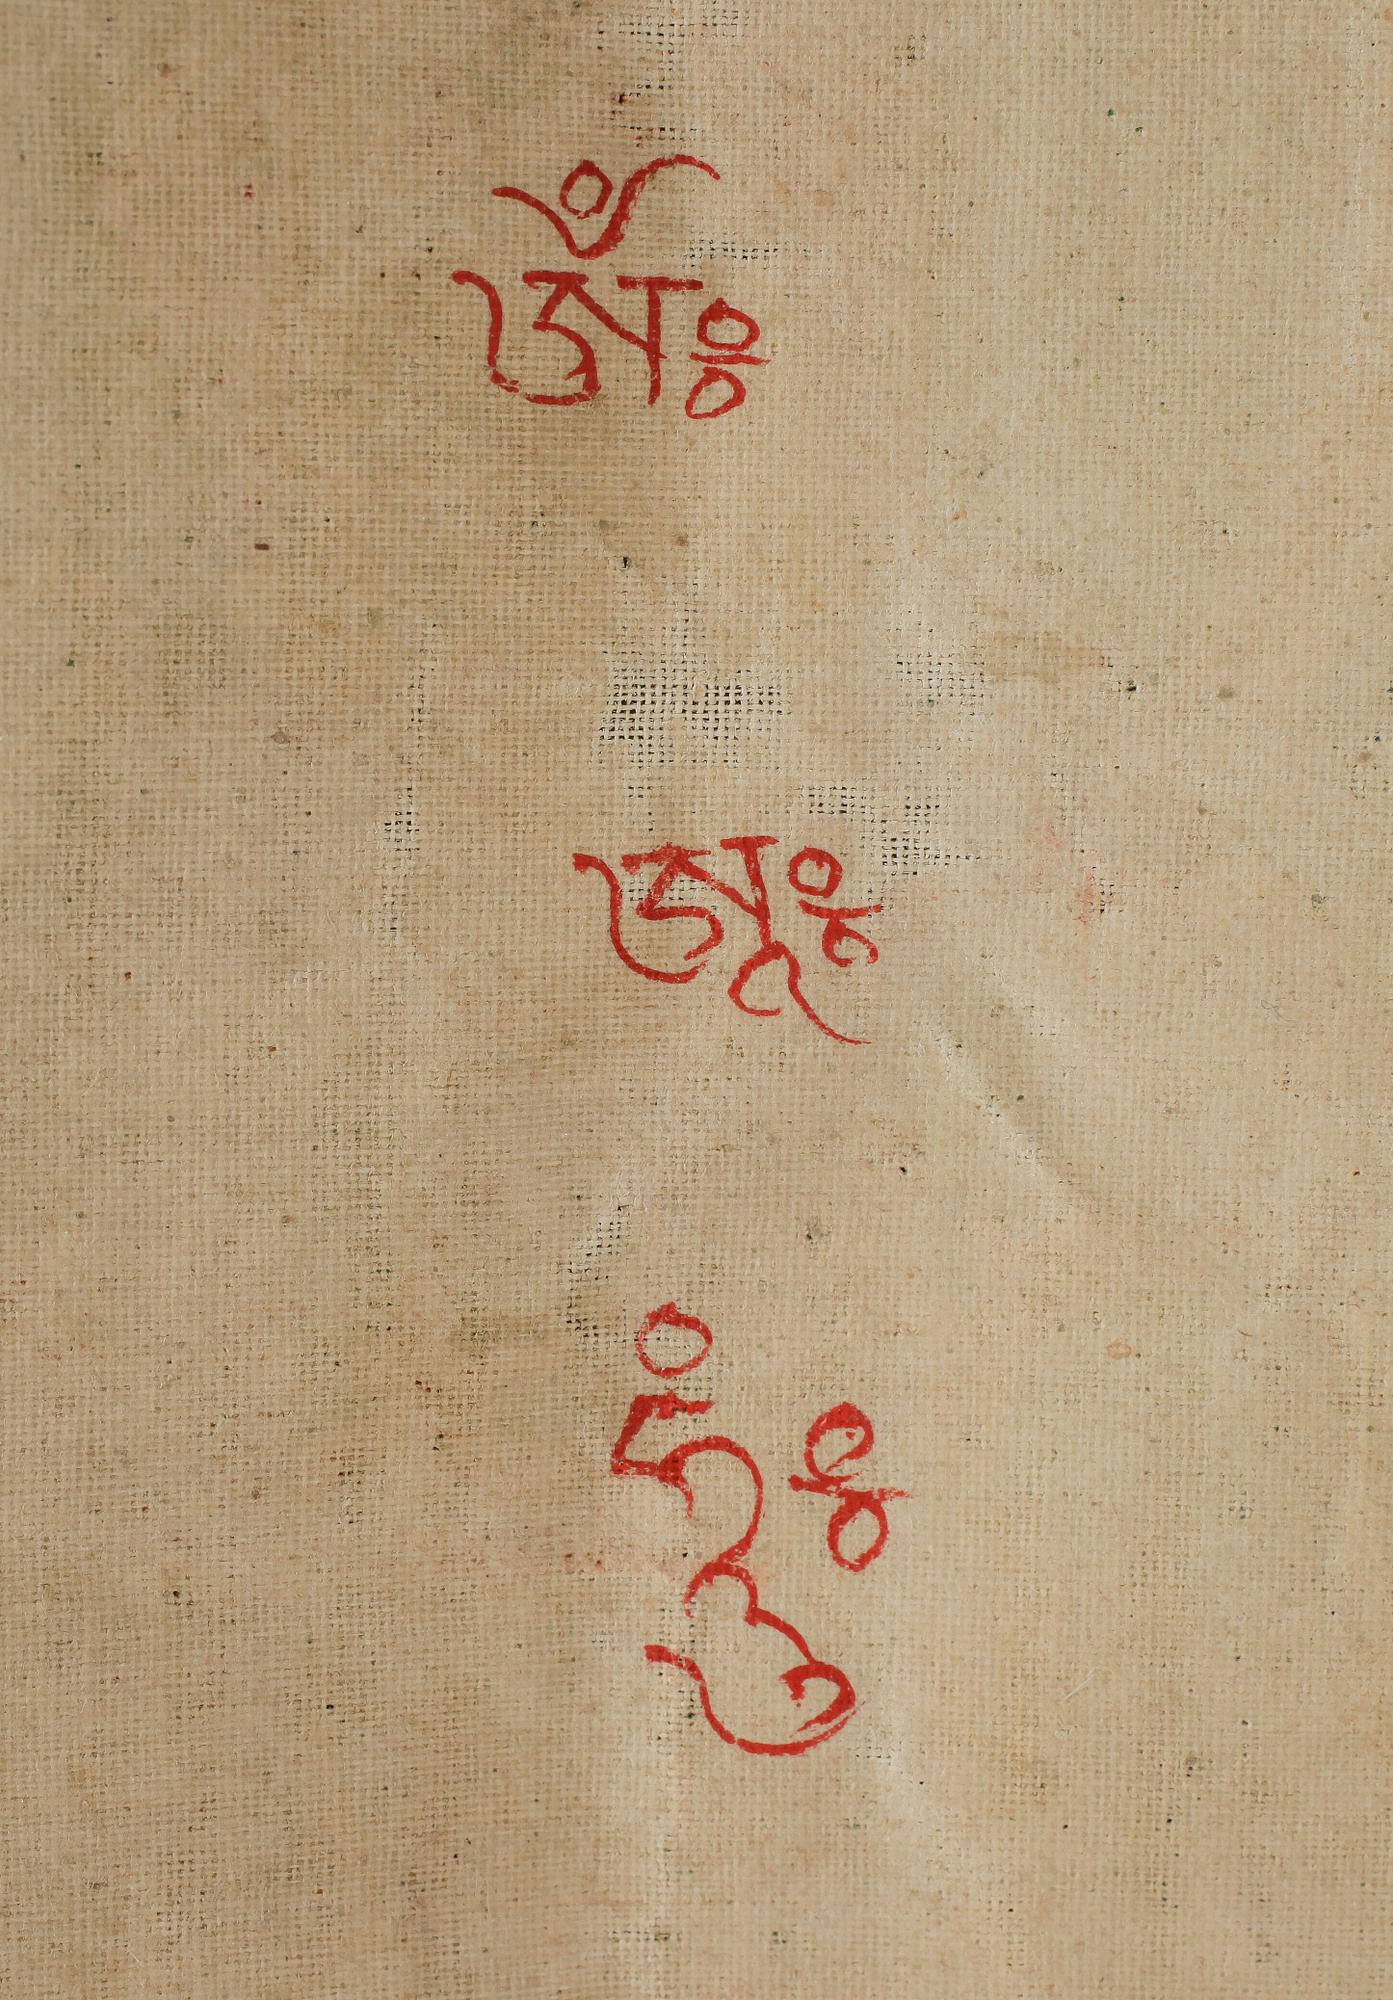 ཨོཾ༔
ཨཱ༔
ཧཱུཾ༔